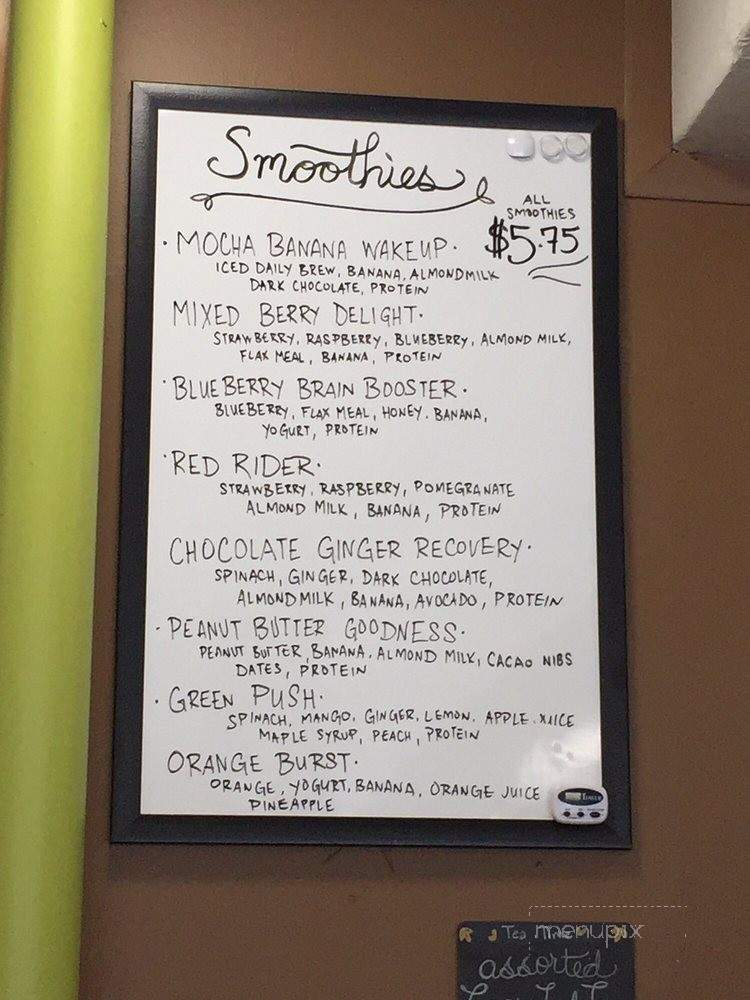 Smoothies
ALL
SMOOTHIES
$5.75
· MOCHA BANANA WAKEUP ·
ICED DAILY BREW, BANANA, ALMONDMILK
DARK CHOCOLATE, PROTEIN
MIXED BERRY DELIGHT ·
STRAWBERRY, RASPBERRY, BLUEBERRY, ALMOND MILK,
FLAX MEAL, BANANA, PROTEIN
· BLUEBERRY BRAIN BOOSTER ·
BLUEBERRY, FLAX MEAL, HONEY. BANANA,
YOGURT, PROTEIN
· RED RIDER ·
STRAWBERRY, RASPBERRY, POMEGRANATE
ALMOND MILK, BANANA, PROTEIN
CHOCOLATE GINGER RECOVERY ·
SPINACH, GINGER, DARK CHOCOLATE,
ALMOND MILK, BANANA, AVOCADO, PROTEIN
· PEANUT BUTTER GOODNESS ·
PEANUT BUTTER, BANANA, ALMOND MILK, CACAO NIBS
DATES, PROTEIN
· GREEN PUSH ·
SPINACH, MANGO, GINGER, LEMON, APPLE JUICE
MAPLE SYRUP, PEACH, PROTEIN
ORANGE BURST ·
ORANGE, YOGURT, BANANA, ORANGE JUICE
PINEAPPLE
Tea Time
menupix
assorted